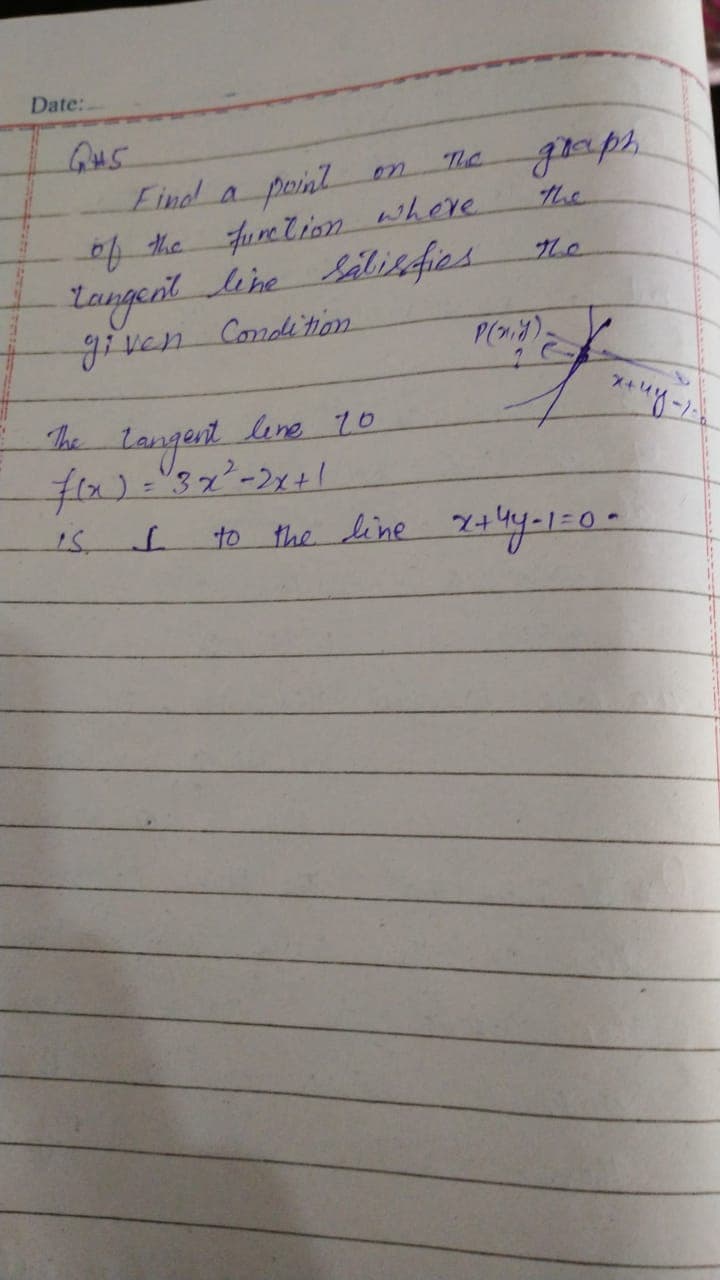 Date:
Q#5
Find a point on the graph
of the function where the
tangent line satisfies the
given Condition
P(x,y)
?
x+4y-1=0
The tangent line to
f(x) = 3x²-2x+1
is ⊥ to the line x+4y-1=0.